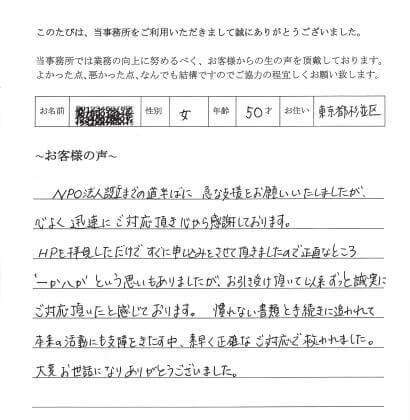 このたびは、当事務所をご利用いただきまして誠にありがとうございました。
当事務所では業務の向上に努めるべく、お客様からの生の声を頂戴しております。
よかった点、悪かった点、なんでも結構ですのでご協力の程宜しくお願い致します。
お名前 性別 女 年齢 50才 お住い 東京都杉並区
~お客様の声~
NPO法人認証までの道半ばに 急な支援をお願いいたしましたが、
心よく 迅速に ご対応頂き 心から感謝しております。
HPを拝見しただけで すぐに申し込みをさせて頂きましたので正直なところ
"一か八か" という思いもありましたが、お引き受け頂いて以来 ずっと誠実に
ご対応頂いたと感じております。 慣れない書類と手続きに追われて
本来の活動にも支障をきたす中、素早く正確な ご対応で 救われました。
大変 お世話になり ありがとうございました。